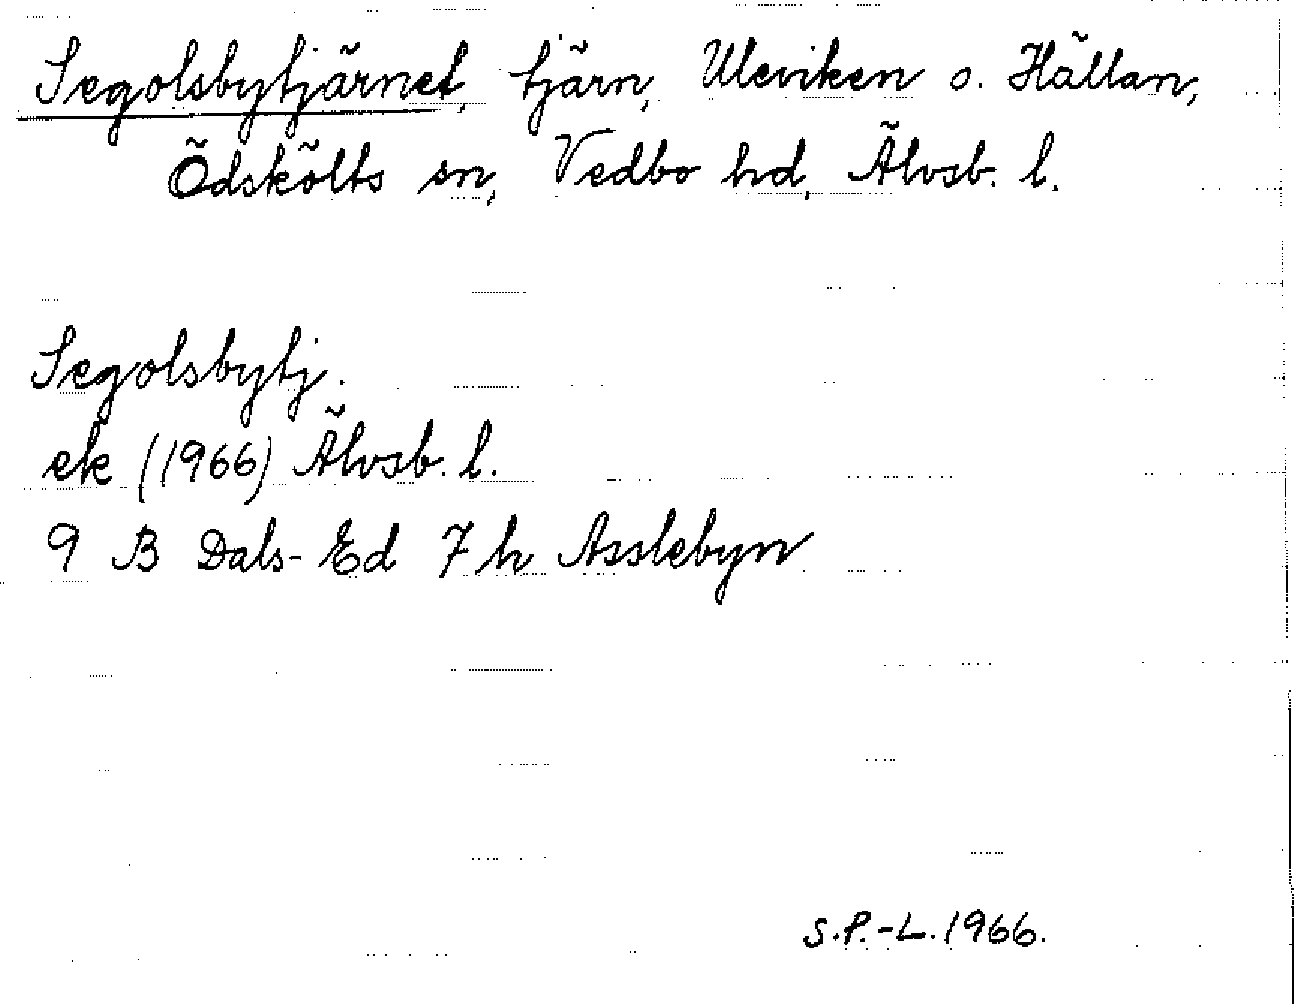 Segolsbytjärnet, tjärn, Uleviken o. Hällan,
Ödskölts sn, Vedbo hd, Älvsb. l.
Segolsbytj.
ek (1966) Älvsb. l.
9 B Dals-Ed 7 h Asslebyn
S.P.-L. 1966.